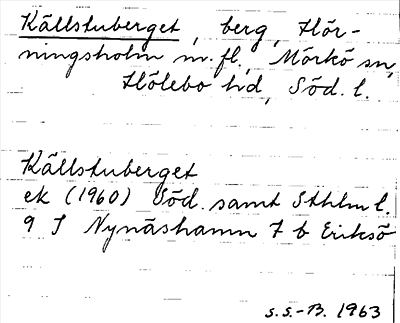 Källstuberget, berg, Hör-
ningsholm m.fl., Mörkö sn,
Hölebo hd, Söd. l.
Källstuberget
ek (1960) Söd. samt Sthlm l.
9 I Nynäshamn 7 b Eriksö
S.S.-B. 1963